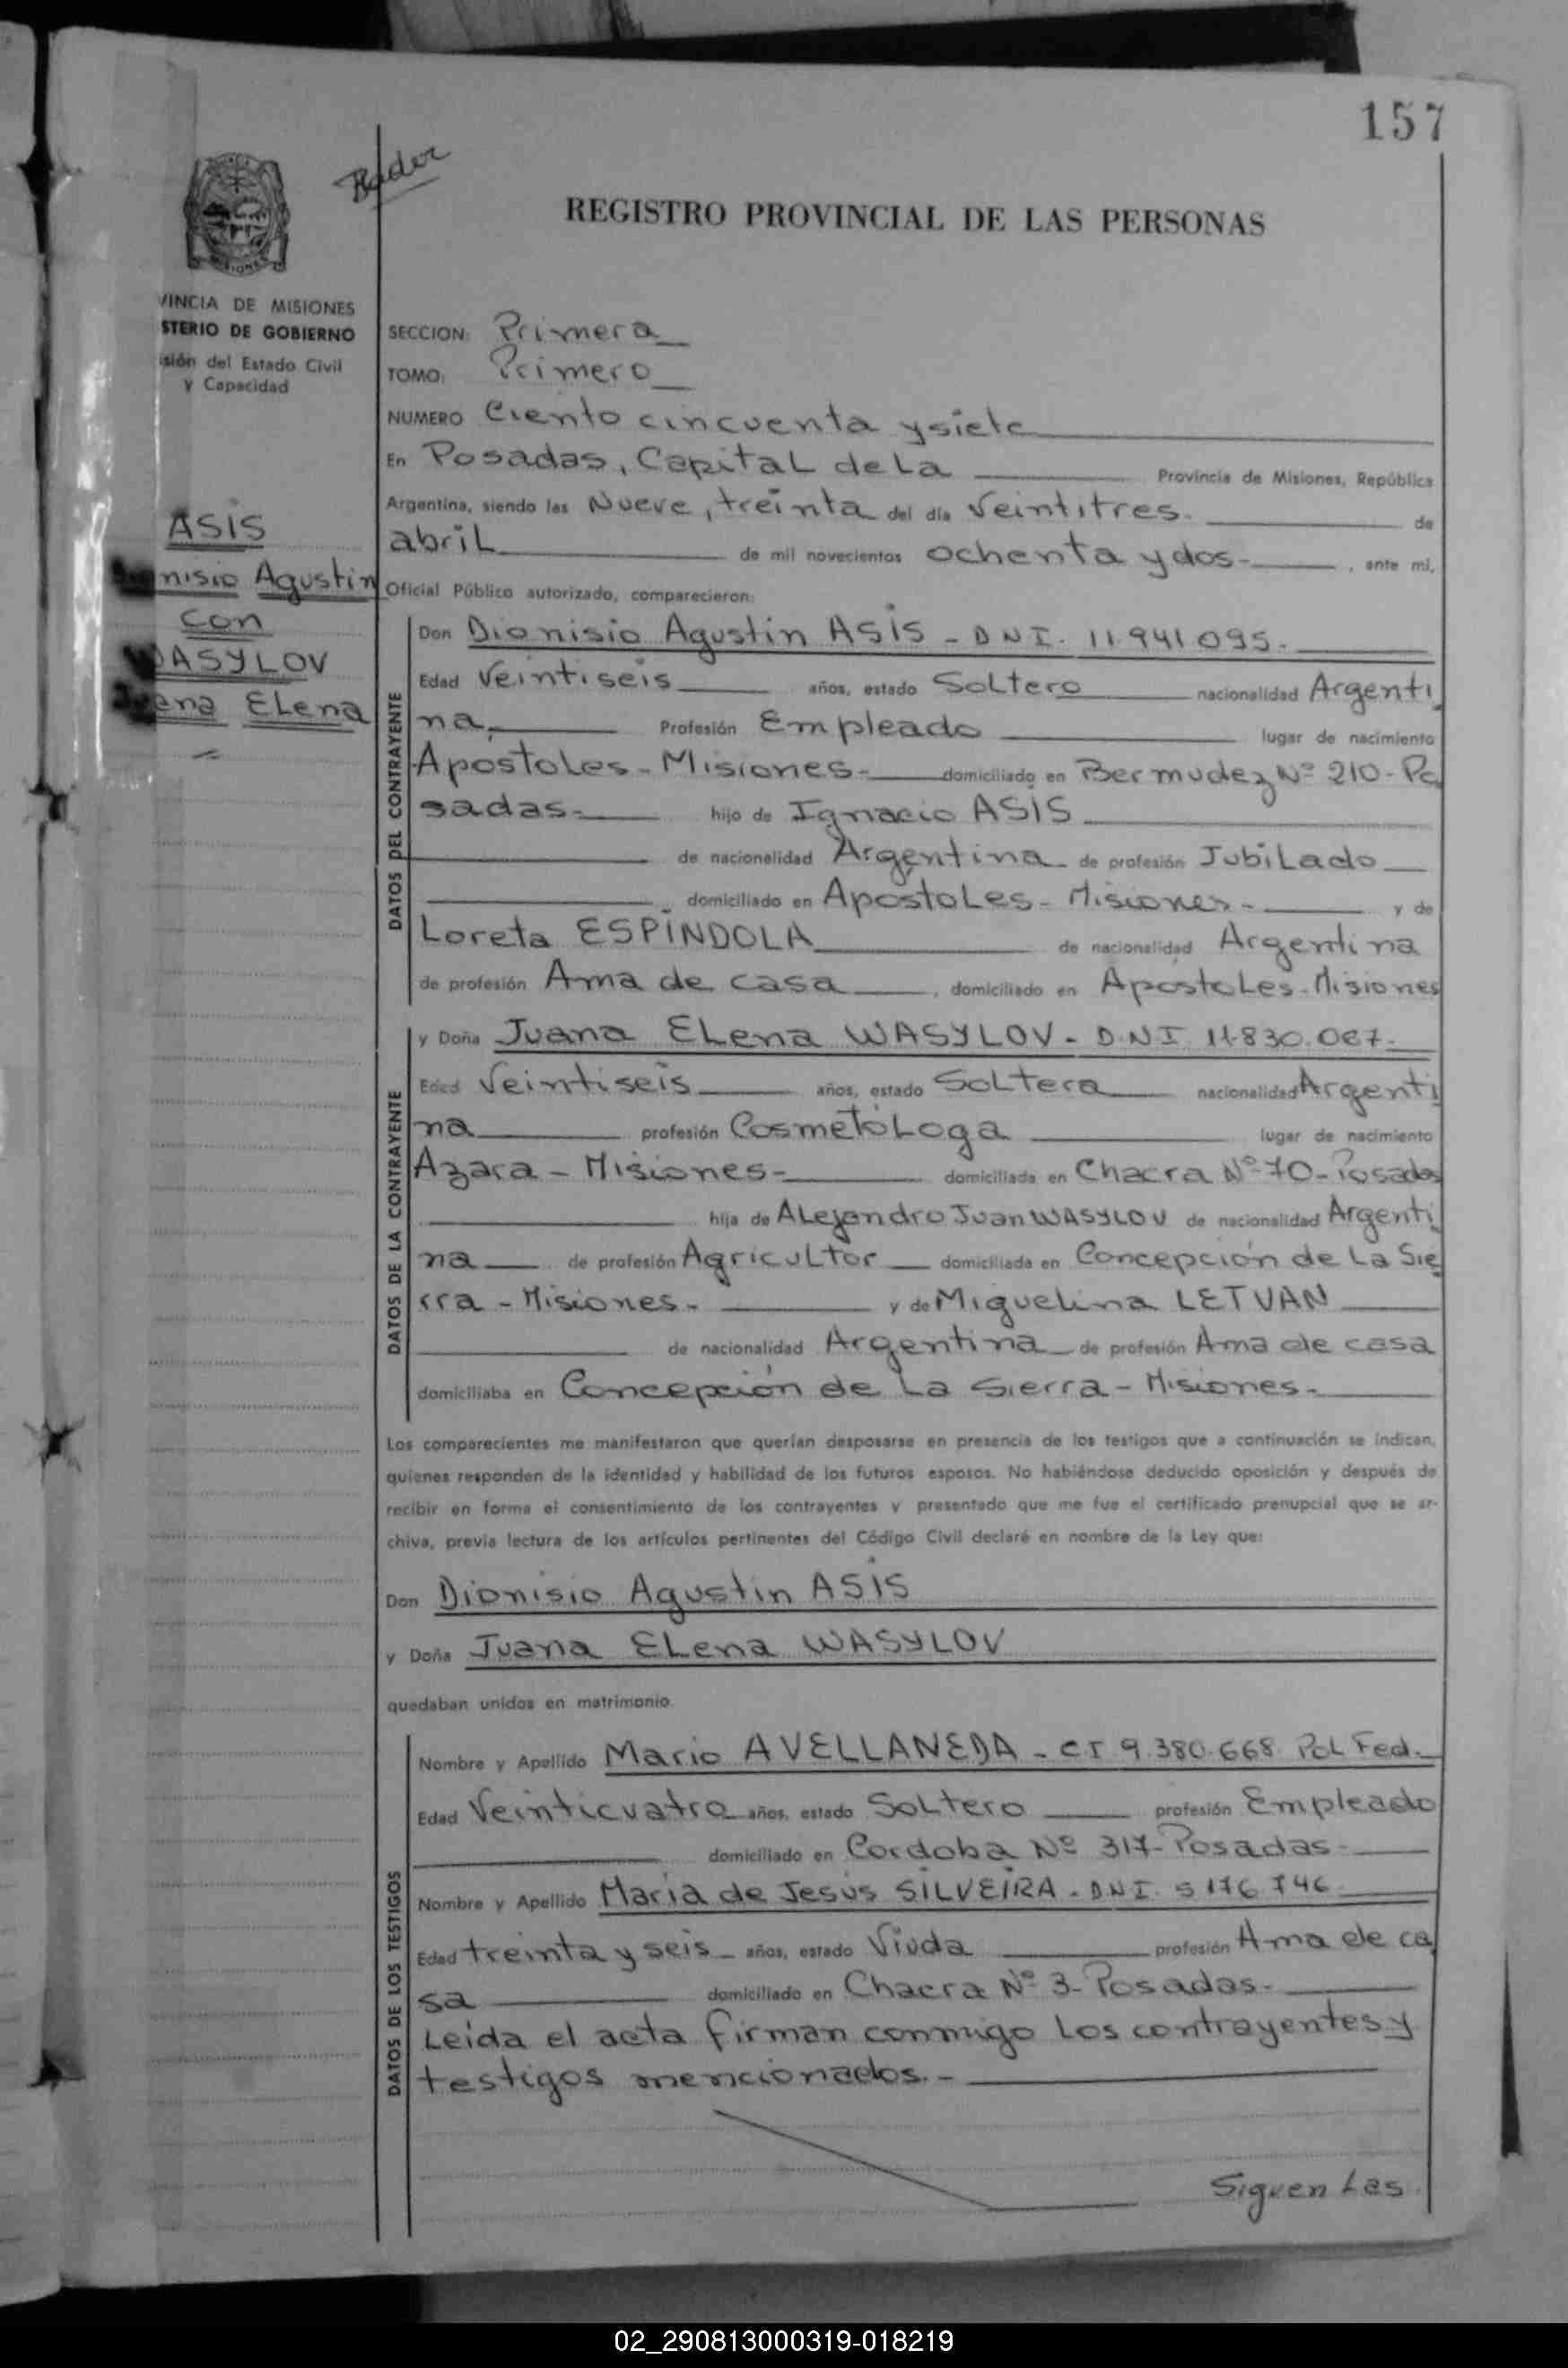 157
Bader
REGISTRO PROVINCIAL DE LAS PERSONAS
MISIONES
VINCIA DE MISIONES
STERIO DE GOBIERNO
isión del Estado Civil
y Capacidad
SECCION: Primera
TOMO: Primero
NUMERO Ciento cincuenta y siete
En Posadas, Capital de La Provincia de Misiones, República
Argentina, siendo las Nueve, treinta del día Veintitres. de
abril de mil novecientos ochenta y dos - , ante mi,
Oficial Público autorizado, comparecieron:
ASIS
nisio Agustin
con
WASYLOV
ana Elena
DATOS DEL CONTRAYENTE
Don Dionisio Agustin ASIS - DNI. 11.941095.
Edad Veintiseis años, estado Soltero nacionalidad Argenti
na, Profesión Empleado lugar de nacimiento
Apostoles - Misiones - domiciliado en Bermudez Nº 210 - Po
sadas - hijo de Ignacio ASIS
de nacionalidad Argentina de profesión Jubilado
domiciliado en Apostoles - Misiones - y de
Loreta ESPÍNDOLA de nacionalidad Argentina
de profesión Ama de casa , domiciliado en Apostoles - Misiones
DATOS DE LA CONTRAYENTE
y Doña Juana Elena WASYLOV - D.N.I 11.830.067.
Edad Veintiseis años, estado Soltera nacionalidad Argenti
na profesión Cosmetóloga lugar de nacimiento
Azara - Misiones - domiciliada en Chacra Nº 70 - Posadas
hija de Alejandro Juan WASYLOV de nacionalidad Argenti
na de profesión Agricultor domiciliada en Concepción de La Sie
rra - Misiones - y de Miguelina LETVAN
de nacionalidad Argentina de profesión Ama de casa
domiciliaba en Concepción de La Sierra - Misiones -
Los comparecientes me manifestaron que querían desposarse en presencia de los testigos que a continuación se indican,
quienes responden de la identidad y habilidad de los futuros esposos. No habiéndose deducido oposición y después de
recibir en forma el consentimiento de los contrayentes y presentado que me fue el certificado prenupcial que se ar-
chiva, previa lectura de los artículos pertinentes del Código Civil declaré en nombre de la Ley que:
Don Dionisio Agustin ASIS
y Doña Juana Elena WASYLOV
quedaban unidos en matrimonio.
DATOS DE LOS TESTIGOS
Nombre y Apellido Mario AVELLANEDA - CI 9.380.668 Pol Fed.
Edad Veinticuatro años, estado Soltero profesión Empleado
domiciliado en Cordoba Nº 317 - Posadas -
Nombre y Apellido Maria de Jesús SILVEIRA - DNI 5 176 746
Edad treinta y seis - años, estado Viuda profesión Ama de ca
sa domiciliado en Chacra Nº 3 - Posadas -
Leida el acta firman conmigo Los contrayentes y
testigos mencionados. -
Siguen Las
02_290813000319-018219